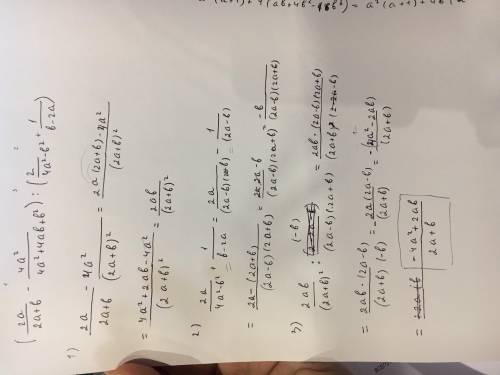 a² (a+1) + 4b
( 2a / 2a+b - 4a² / 4a²+4ab+b² ) : ( 2 / 4a²-b² + 1 / b-2a )
1) 2a / 2a+b - 4a² / (2a+b)² = 2a (2a+b) - 4a² / (2a+b)² =
= 4a² + 2ab - 4a² / (2a+b)² = 2ab / (2a+b)²
2) 2a / 4a²-b² + 1 / b-2a = 2a / (2a-b)(2a+b) - 1 / (2a-b) =
= 2a - (2a+b) / (2a-b)(2a+b) = 2a-2a-b / (2a-b)(2a+b) = -b / (2a-b)(2a+b)
3) 2ab / (2a+b)² : (-b) / (2a-b)(2a+b) = 2ab · (2a-b)(2a+b) / (2a+b)²
= 2ab · (2a-b) / (2a+b) (-b) = - 2a(2a-b) / (2a+b) = -(4a²-2ab) / (2a+b)
= -4a²+2ab / 2a+b